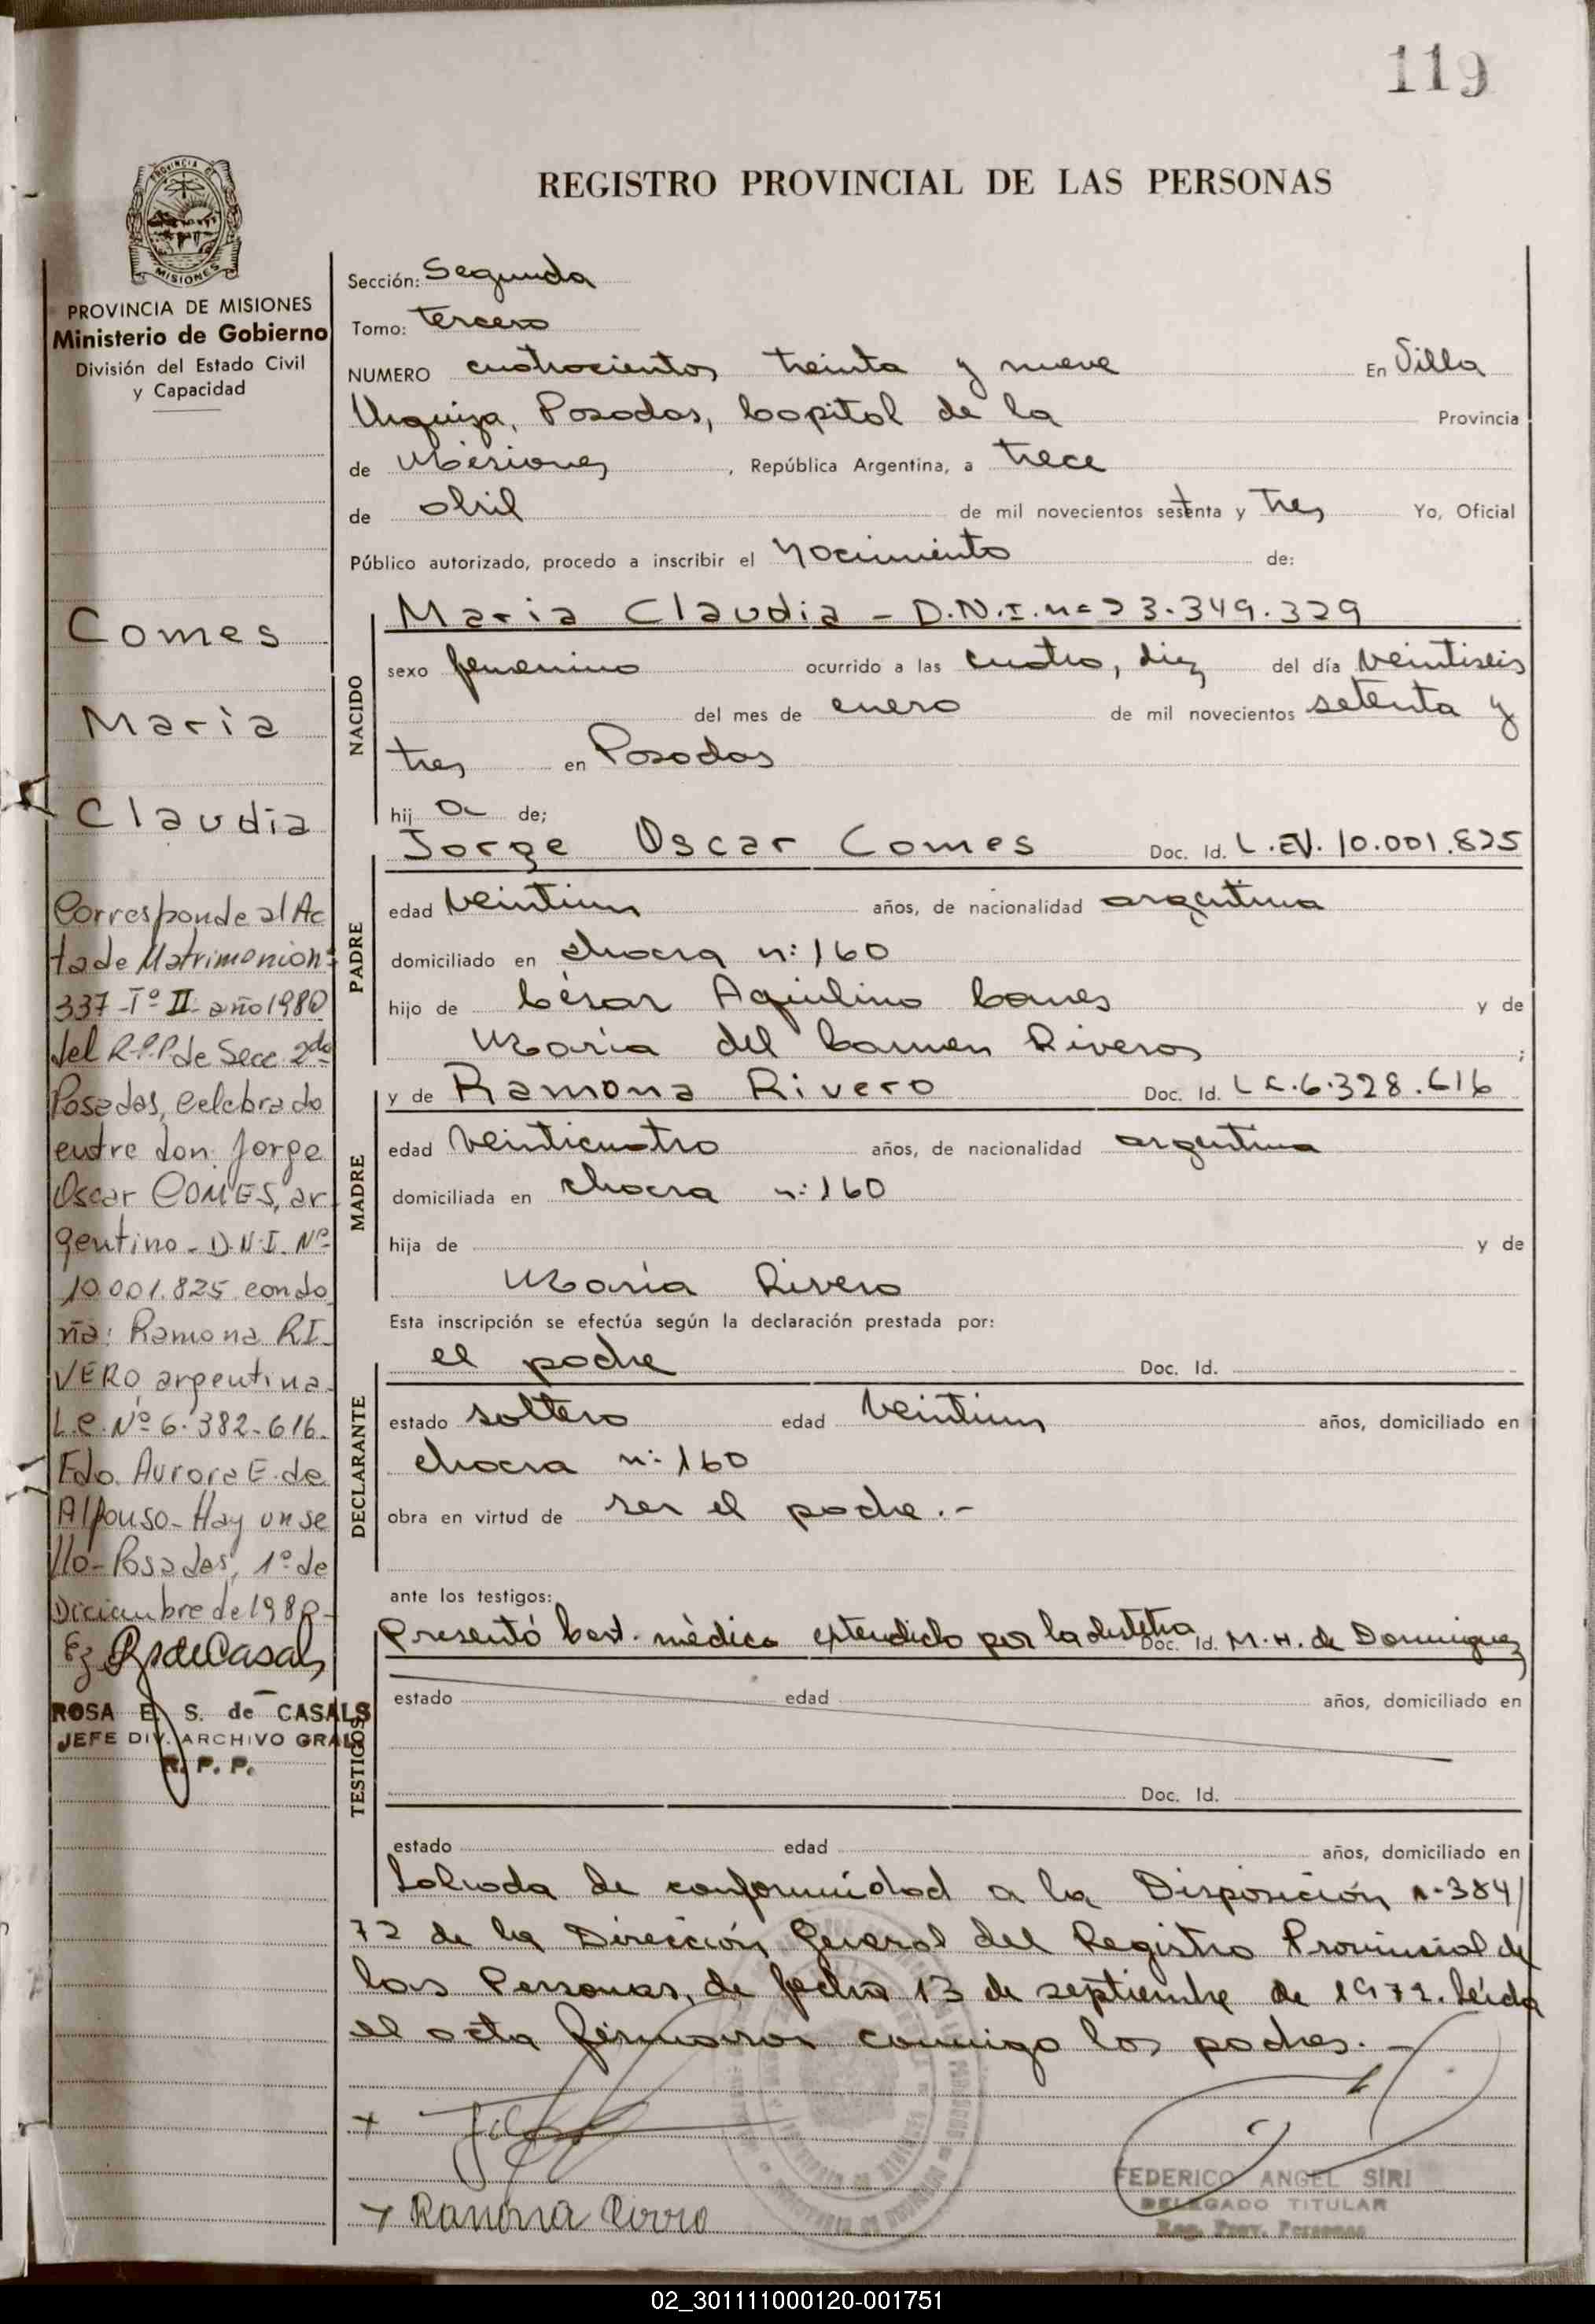 119
PROVINCIA DE
MISIONES
REGISTRO PROVINCIAL DE LAS PERSONAS
PROVINCIA DE MISIONES
Ministerio de Gobierno
División del Estado Civil
y Capacidad
Comes
Maria
Claudia
Corresponde al Ac
ta de Matrimonio nº
337-Tº II año 1980
del R.P.P. de Secc. 2da
Posadas, celebrado
entre don: Jorge
Oscar COMES, ar
gentino - D.N.I. Nº
10.001.825 con do
ña: Ramona RI
VERO argentina
L.C. Nº 6.382.616.
Fdo. Aurora E. de
Alfonso - Hay un se
llo - Posadas, 1º de
Diciembre de 1980 -
ROSA E. S. de CASALS
JEFE DIV. ARCHIVO GRAL
R. P. P.
Sección: Segunda
Tomo: tercero
NUMERO cuatrocientos treinta y nueve En Villa
Urquiza, Posadas, Capital de la Provincia
de Misiones, República Argentina, a trece
de abril de mil novecientos setenta y tres Yo, Oficial
Público autorizado, procedo a inscribir el Nacimiento de:
NACIDO
Maria Claudia - D.N.I. nº 23.349.329
sexo femenino ocurrido a las cuatro, diez del día veintiseis
del mes de enero de mil novecientos setenta y
tres en Posadas
hij a de;
PADRE
Jorge Oscar Comes Doc. Id. L.EN. 10.001.825
edad veintiun años, de nacionalidad argentina
domiciliado en chacra n: 160
hijo de César Aquilino Comes y de
María del Carmen Riveros ;
MADRE
y de Ramona Rivero Doc. Id. L C. 6.328.616
edad veinticuatro años, de nacionalidad argentina
domiciliada en chacra n: 160
hija de y de
María Rivero
Esta inscripción se efectúa según la declaración prestada por:
DECLARANTE
el padre Doc. Id.
estado soltero edad veintiun años, domiciliado en
chacra n: 160
obra en virtud de ser el padre.-
ante los testigos:
TESTIGOS
Presentó Cert. médico extendido por la obstetra Doc. Id. M. H. de Dominguez
estado edad años, domiciliado en
Doc. Id.
estado edad años, domiciliado en
Labrada de conformidad a la Disposición n-384/
72 de la Dirección General del Registro Provincial de
las Personas, de fecha 13 de septiembre de 1972. Leída
el acta firmaron conmigo los padres. -
x
x Ramona
FEDERICO ANGEL SIRI
DELEGADO TITULAR
Reg. Prov. Personas
02_301111000120-001751